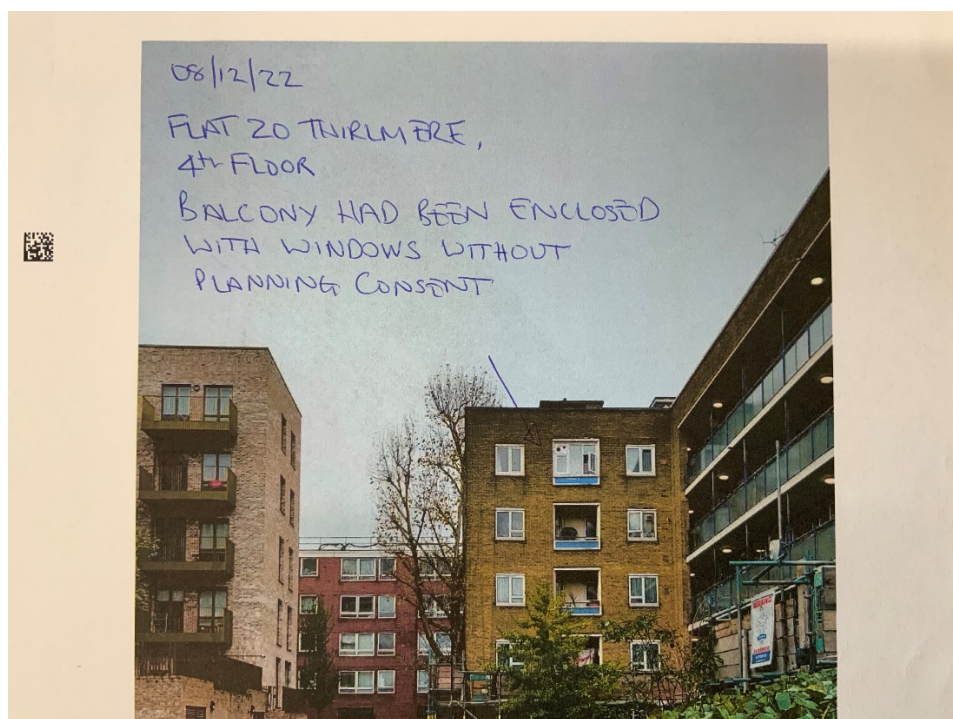 08/12/22
FLAT 20 THIRLMERE,
4th FLOOR
BALCONY HAD BEEN ENCLOSED
WITH WINDOWS WITHOUT
PLANNING CONSENT